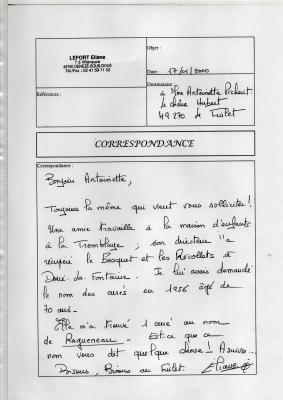 LEFORT Eliane
49700 DENEZE-SOUS-DOUÉ
Tél/Fax : 02 41 59 71 52
Objet :
Date : 17/01/2000
Références :
Destinataire :
à Mme Antoinette Picherit
le chêne Hubert
49270 le Fuilet
CORRESPONDANCE
Correspondance :
Bonjour Antoinette,
Toujours la même qui vient vous solliciter !
Une amie travaille à la maison d'enfants
à la Tremblaye ; son directeur "a
récupéré le Bosquet et les Récollets à
Doué-la-Fontaine. Je lui avais demandé
le nom des curés en 1956 âgé de
70 ans.
Elle m'a trouvé 1 curé au nom
de Ragueneau. Est-ce que ce
nom vous dit quelque chose ! A suivre...
Bisous, Bisous au Fuilet. Eliane